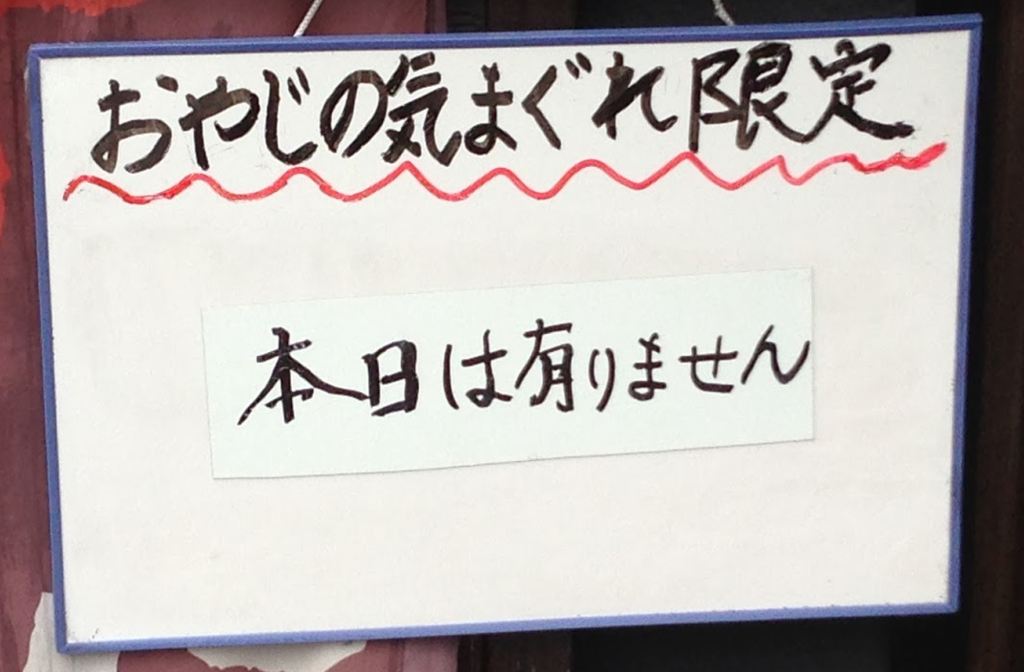 おやじの気まぐれ限定
本日は有りません